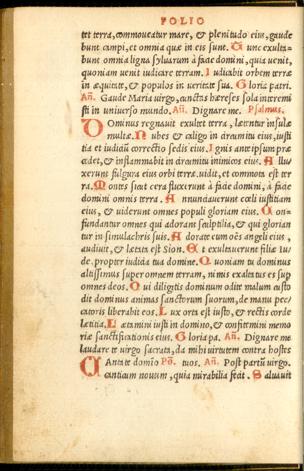 FOLIO
tet terra, commoueatur mare, & plenitudo eius, gaude
bunt campi, et omnia quæ in eis sunt. Tunc exulta-
bunt omnia ligna syluarum à facie domini, quia venit,
quoniam venit iudicare terram. Iudicabit orbem terræ
in æquitate, & populos in veritate sua. Gloria patri.
Añ. Gaude Maria virgo, cunctas hæreses sola interemi
sti in vniuerso mundo. Añ. Dignare me. Psalmus.
Dominus regnauit exultet terra, lætentur insulæ
multæ. Nubes & caligo in circuitu eius, iusti
tia et iudiciū correctio sedis eius. Ignis ante ipsum præ
cedet, & inflammabit in circuitu inimicos eius. Illu-
xerunt fulgura eius orbi terræ. vidit, et commota est ter
ra. Montes sicut cera fluxerunt à facie domini, à facie
domini omnis terra. Annunciauerunt cœli iustitiam
eius, & uiderunt omnes populi gloriam eius. Con-
fundantur omnes qui adorant sculptilia, & qui glorian
tur in simulachris suis. Adorate eum oēs angeli eius,
audiuit, & lætata est Sion. Et exultauerunt filiæ Iu-
dæ, propter iudicia tua domine. Quoniam tu dominus
altissimus super omnem terram, nimis exaltatus es sup
omnes deos. Qui diligitis dominum odite malum custo
dit dominus animas sanctorum suorum, de manu pec/
catoris liberabit eos. Lux orta est iusto, & rectis corde
lætitia. Lætamini iusti in domino, & confitemini memo
riæ sanctificationis eius. Gloria pa. Añ. Dignare me
laudare te virgo sacrata, da mihi virtutem contra hostes
Cantate domīo tuos. Añ. Post partū virgo.
canticum nouum, quia mirabilia fecit. Saluauit